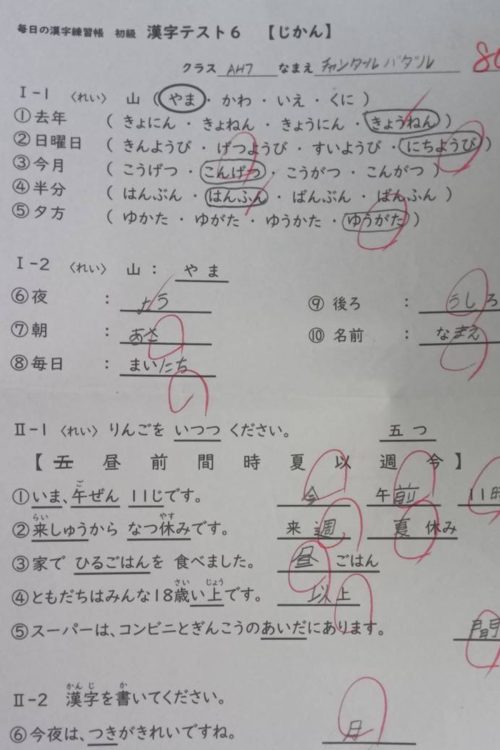 毎日の漢字練習帳 初級 漢字テスト6 【じかん】
クラス AH7 なまえ チャンタール バダル 80
I-1 〈れい〉 山 ( やま ・ かわ ・ いえ ・ くに )
① 去年 ( きょにん ・ きょねん ・ きょうにん ・ きょうねん )
② 日曜日 ( きんようび ・ げつようび ・ すいようび ・ にちようび )
③ 今月 ( こうげつ ・ こんげつ ・ こうがつ ・ こんがつ )
④ 半分 ( はんぶん ・ はんふん ・ ばんぶん ・ ばんふん )
⑤ 夕方 ( ゆかた ・ ゆがた ・ ゆうかた ・ ゆうがた )
I-2 〈れい〉 山 : やま
⑥ 夜 : よう ⑨ 後ろ : うしろ
⑦ 朝 : あさ ⑩ 名前 : なまえ
⑧ 毎日 : まいにち
II-1 〈れい〉 りんごを いつつ ください。 五つ
【 五 昼 前 間 時 夏 以 週 今 】
① いま、午ぜん 11じです。 今 午前 11時
ご
② 来しゅうから なつ休みです。 来週 夏休み
らい やす
③ 家で ひるごはんを 食べました。 昼ごはん
④ ともだちはみんな18歳い上です。 以上
さい じょう
⑤ スーパーは、コンビニとぎんこうのあいだにあります。 間
II-2 漢字を書いてください。
かんじ か
⑥ 今夜は、つきがきれいですね。 月